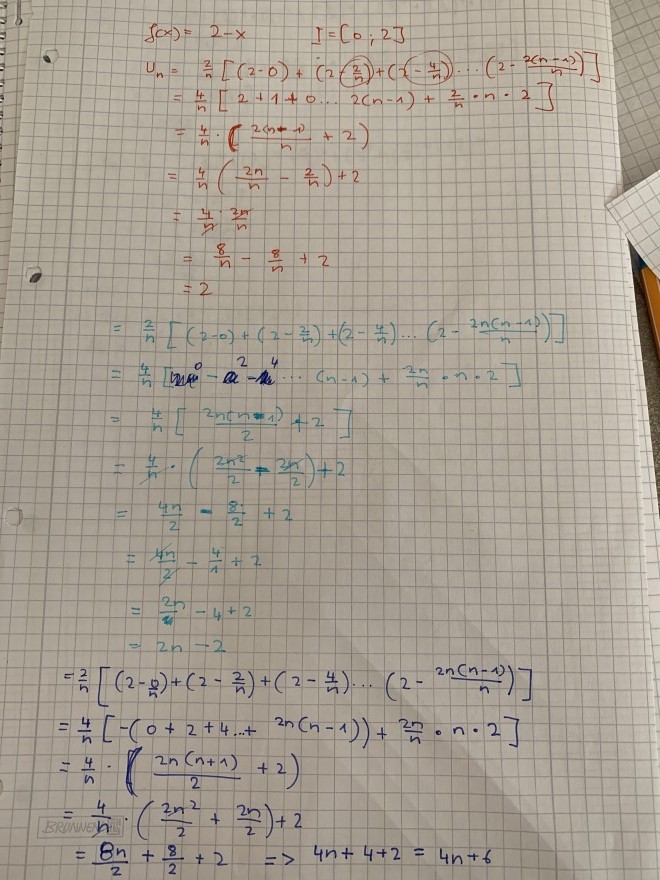 f(x) = 2-x I = [0 ; 2]
Un = 2/n [(2-0) + (2-2/n) + (2-4/n) ... (2 - 2(n-1)/n)]
= 4/n [2 + 1 + 0 ... 2(n-1) + 2/n • n • 2]
= 4/n • (2(n-1)/n + 2)
= 4/n (2n/n - 2/n) + 2
= 4/n • 2n/n
= 8/n - 8/n + 2
= 2
= 2/n [(2-0) + (2 - 2/n) + (2 - 4/n) ... (2 - 2n(n-1)/n)]
= 4/n [0 - 2 - 4 ... (n-1) + 2n/n • n • 2]
= 4/n [2n(n-1)/2 + 2]
= 4/n • (2n²/2 - 2n/2) + 2
= 4n/2 - 8/2 + 2
= 4n/2 - 4/1 + 2
= 2n - 4 + 2
= 2n - 2
= 2/n [(2-0/n) + (2 - 2/n) + (2 - 4/n) ... (2 - 2n(n-1)/n)]
= 4/n [-(0 + 2 + 4 ... + 2n(n-1)) + 2n/n • n • 2]
= 4/n • (2n(n+1)/2 + 2)
= 4/n • (2n²/2 + 2n/2) + 2
= 8n/2 + 8/2 + 2 => 4n + 4 + 2 = 4n + 6